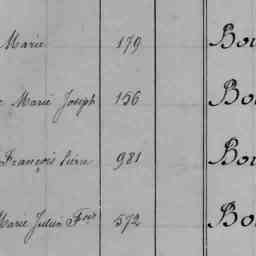 Marie 179 Bou
Marie Joseph 156 Bou
François Pierre 981 Bou
Marie Julien Fçois 572 Bou